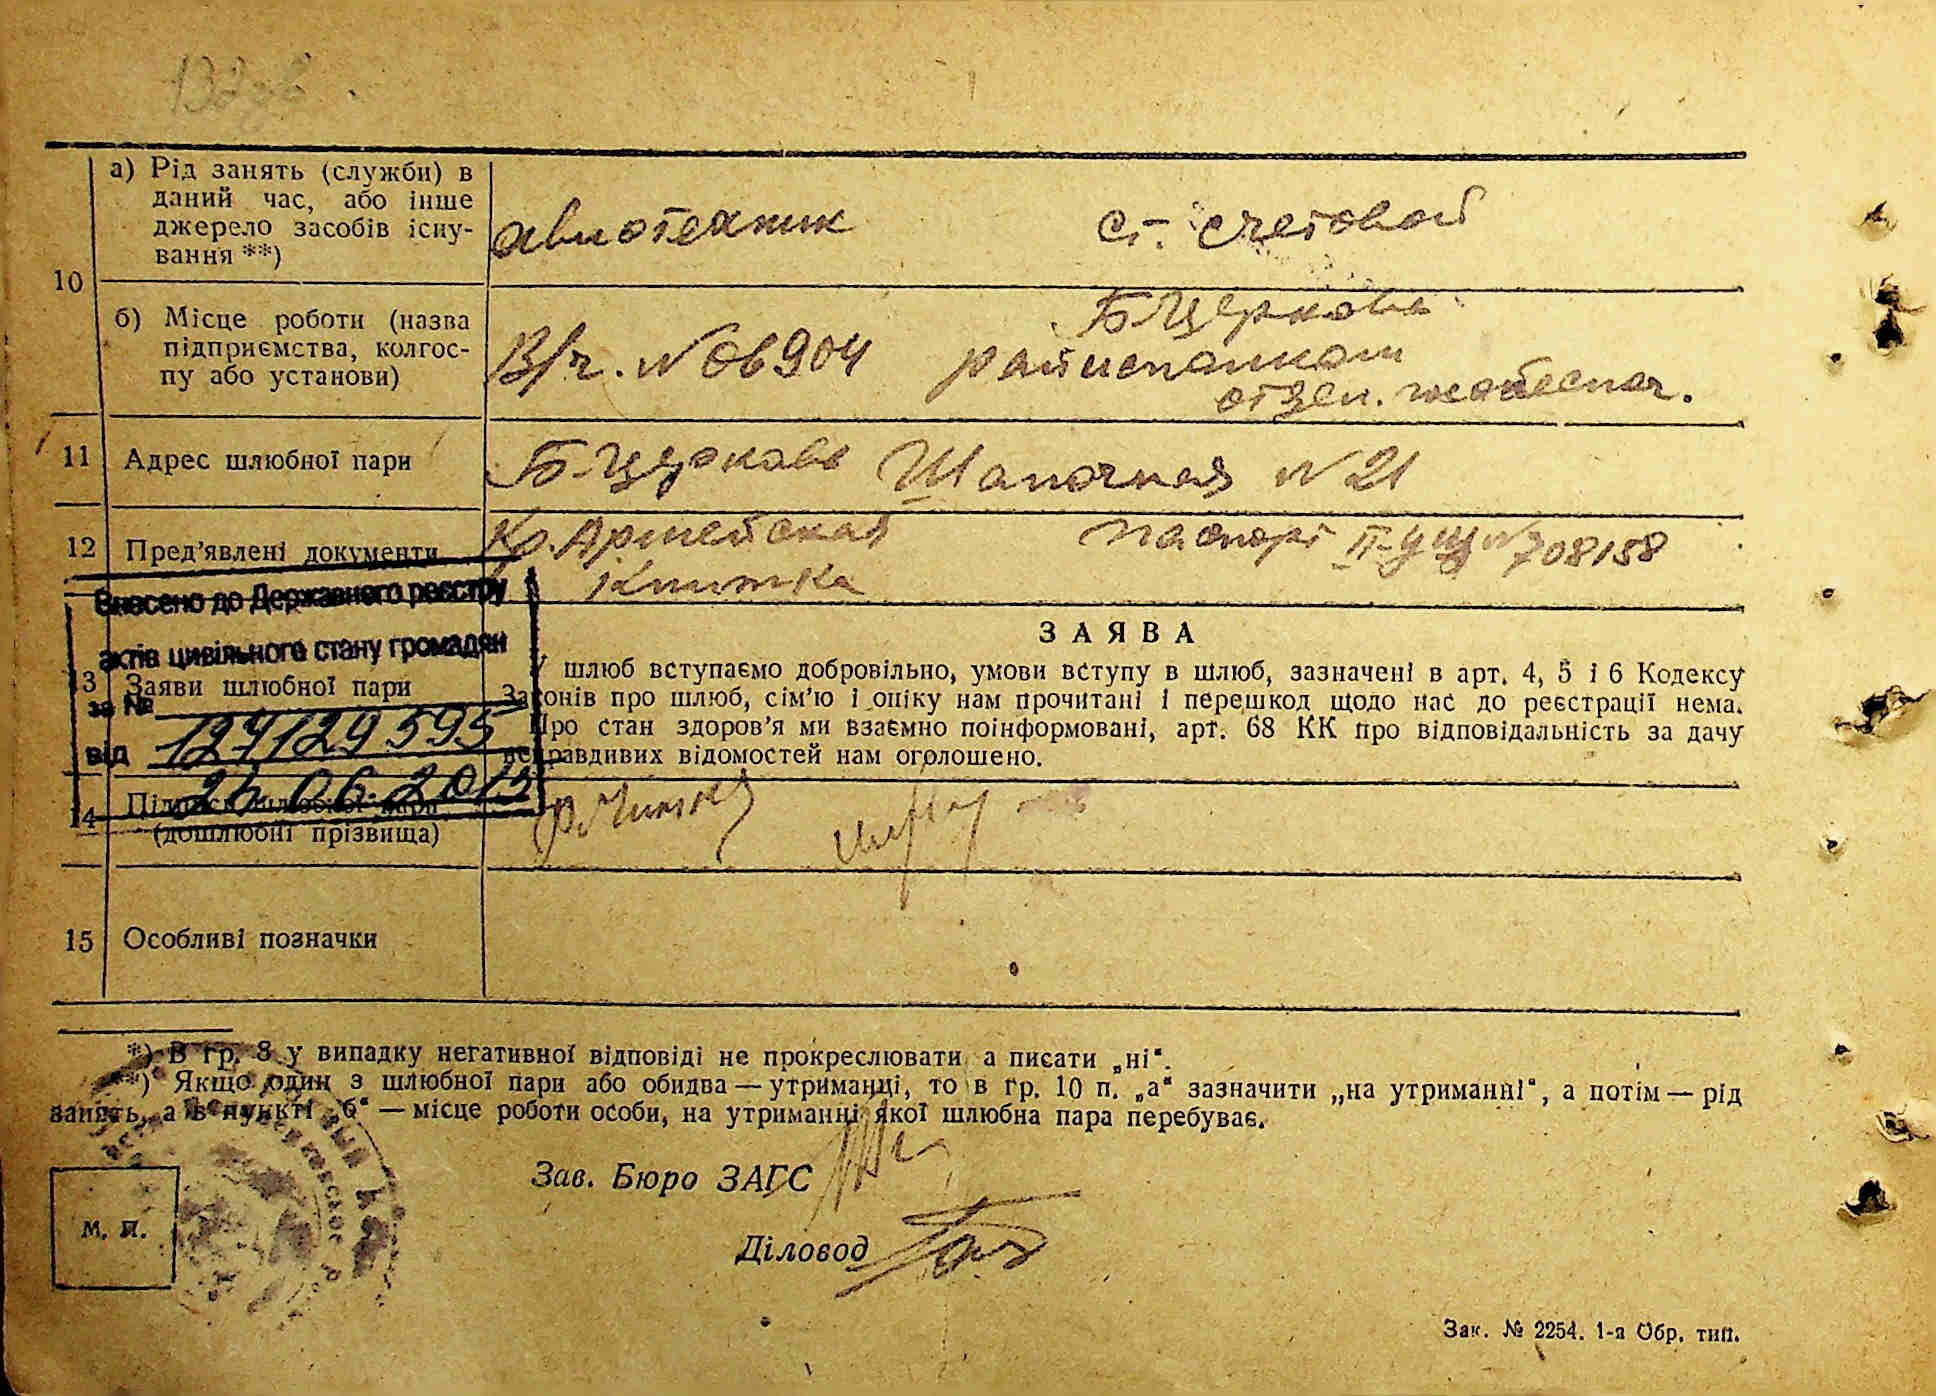 а) Рід занять (служби) в
даний час, або інше
джерело засобів існу-
вання **)
авиотехник
ст. счетовод
10
б) Місце роботи (назва
підприємства, колгос-
пу або установи)
В/ч. N 06904
Б-Церковь
райисполком
отдел.
11
Адрес шлюбної пари
Б-Церковь Шапочная N 21
12
Пред'явлені документи
Кр. Армейская
книжка
паспорт II- N 708158
Внесено до Державного реєстру
актів цивільного стану громадян
за №
127129595
від
13
Заяви шлюбної пари
ЗАЯВА
У шлюб вступаємо добровільно, умови вступу в шлюб, зазначені в арт. 4, 5 і 6 Кодексу
Законів про шлюб, сім'ю і опіку нам прочитані і перешкод щодо нас до реєстрації нема.
Про стан здоров'я ми взаємно поінформовані, арт. 68 КК про відповідальність за дачу
неправдивих відомостей нам оголошено.
14
Підписи шлюбної пари
(дошлюбні прізвища)
15
Особливі позначки
*) В гр. 8 у випадку негативної відповіді не прокреслювати а писати „ні“.
**) Якщо один з шлюбної пари або обидва — утриманці, то в гр. 10 п. „а“ зазначити „на утриманні“, а потім — рід
занять, а в пункті „б“ — місце роботи особи, на утриманні якої шлюбна пара перебуває.
М. П.
Зав. Бюро ЗАГС
Діловод
Зак. № 2254. 1-а Обр. тип.